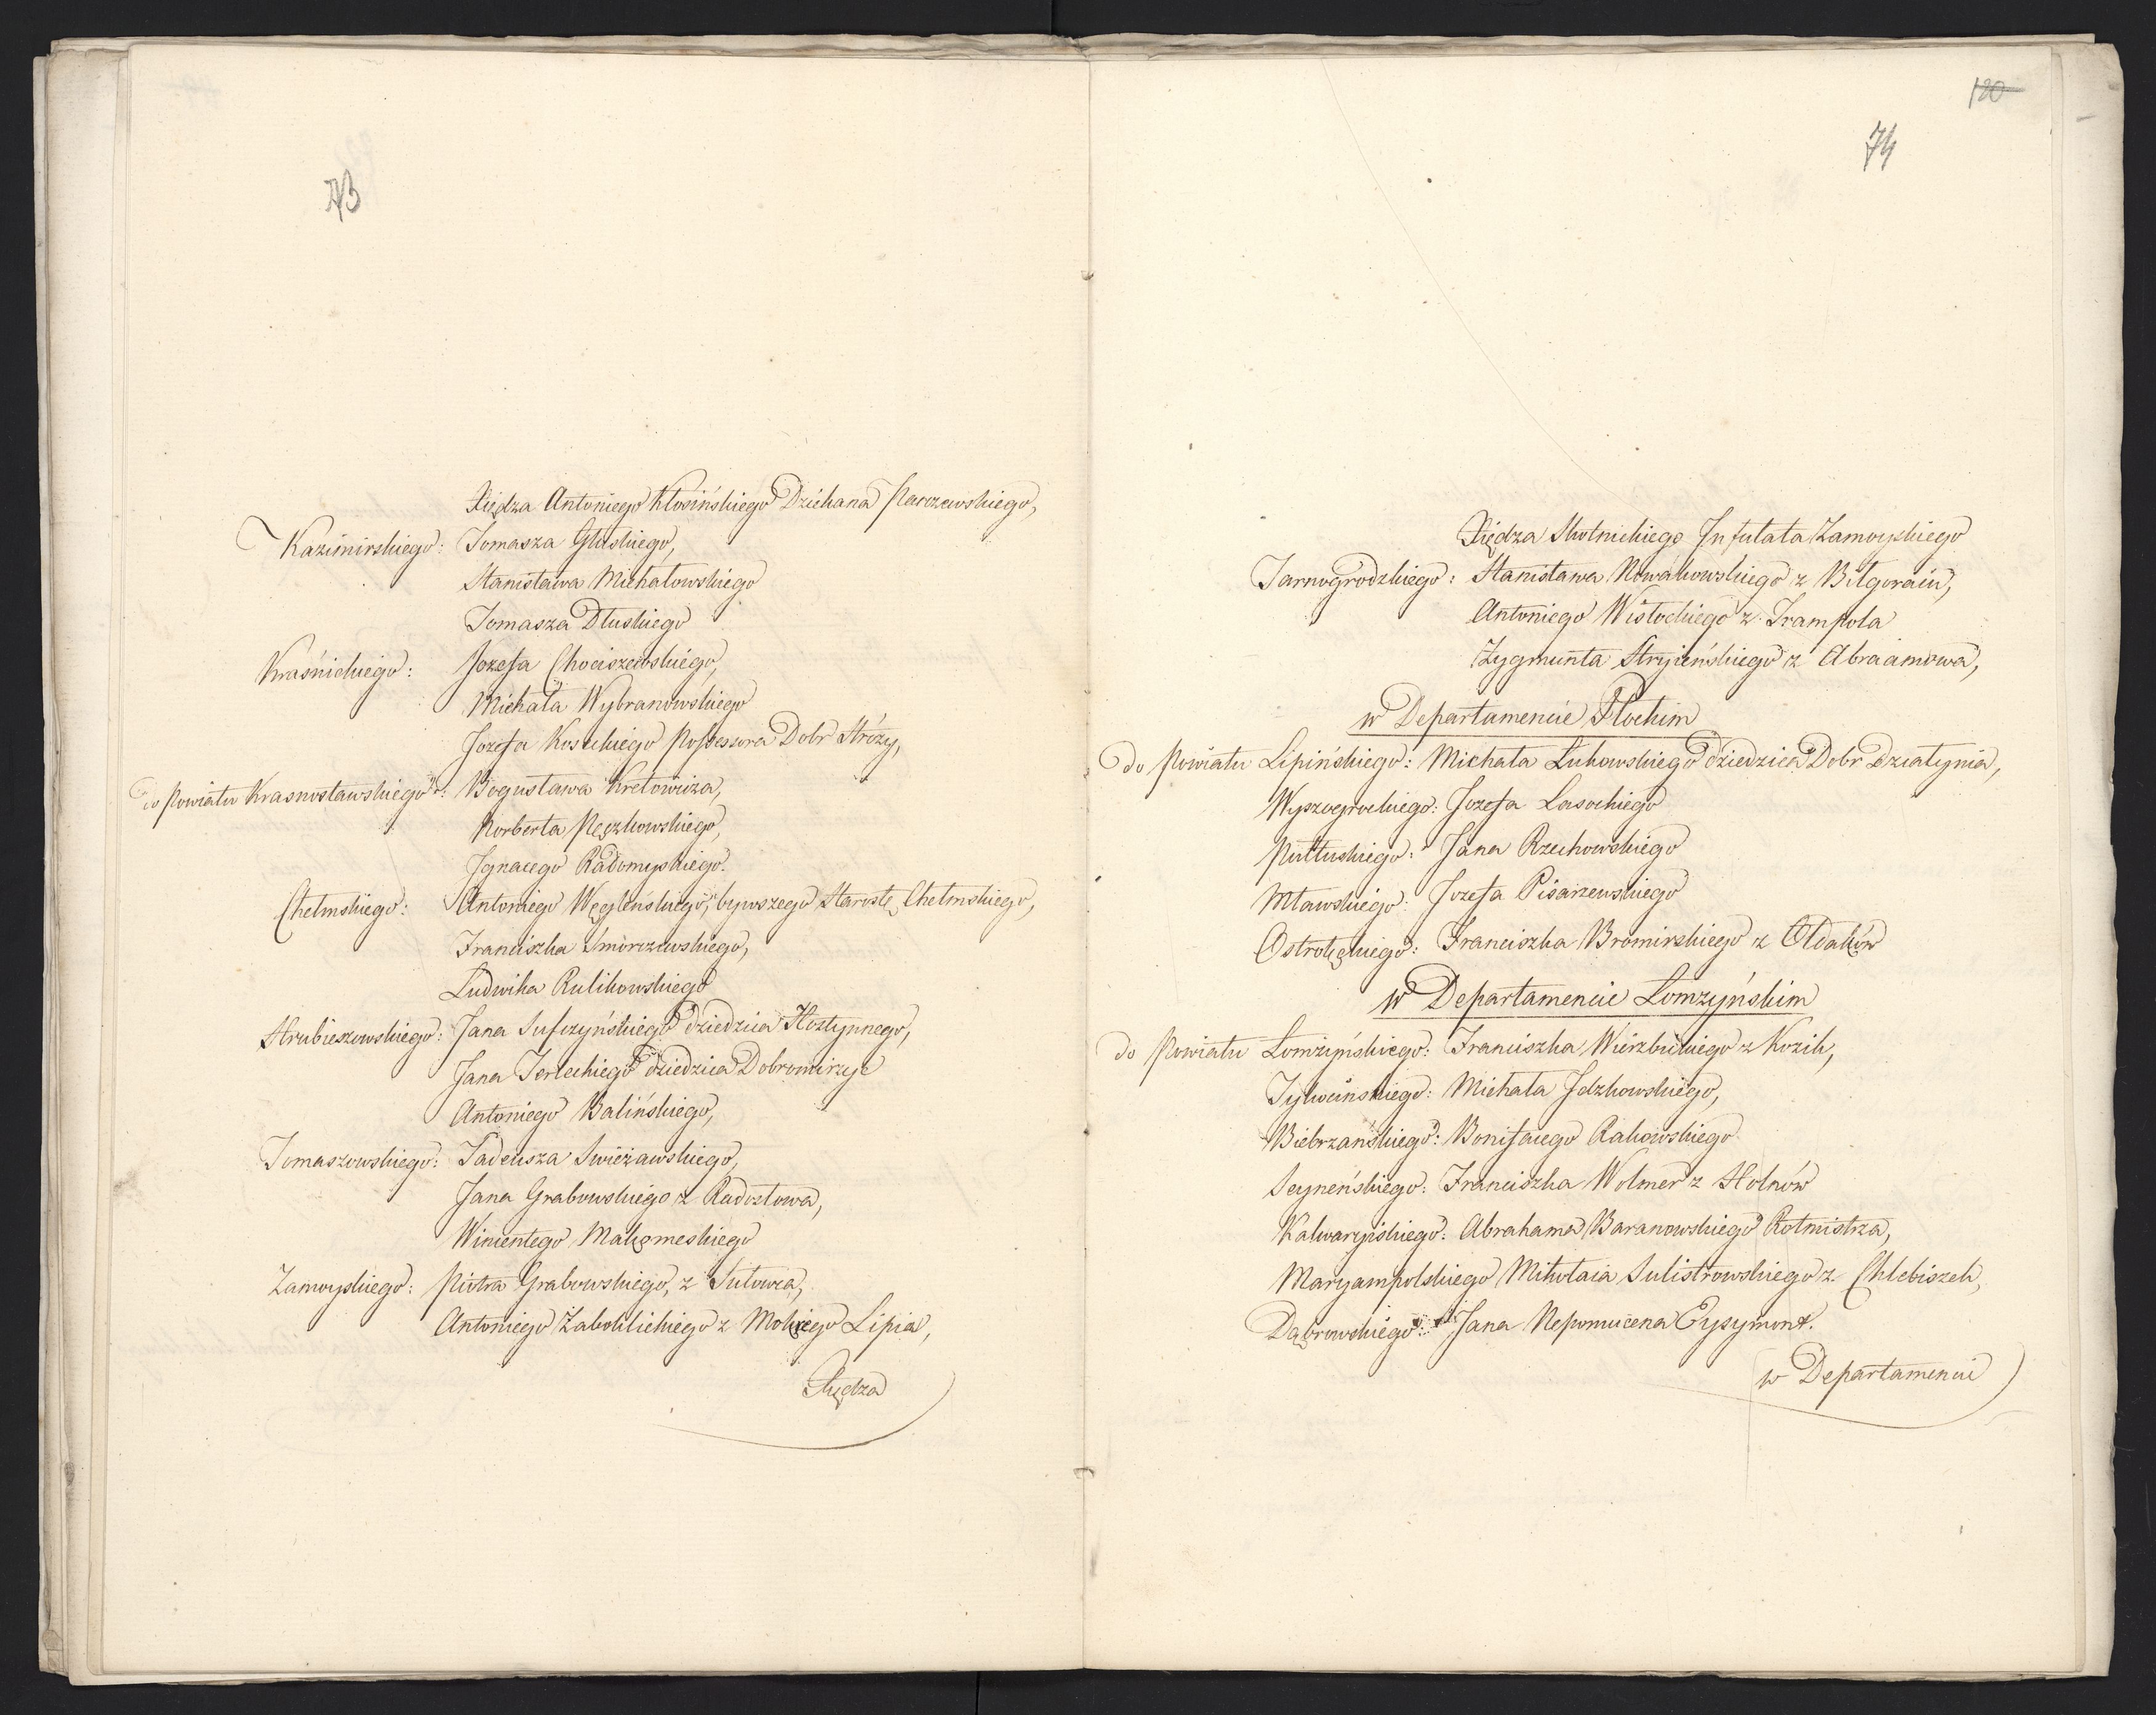 73
Xiędza Antoniego Kłosińskiego Dziekana Parczewskiego,
Kazimirskiego: Tomasza Głuskiego,
Stanisława Michałowskiego
Tomasza Dłuskiego
Kraśnickiego: Jozefa Chociszewskiego,
Michała Wybranowskiego
Jozefa Koseckiego Possessora Dobr Stróży,
do Powiatu Krasnostawskiego: Bogusława Kretowicza,
Norberta Pęczkowskiego,
Ignacego Radomyskiego.
Chełmskiego: Antoniego Węgleńskiego, bywszego Starostę Chełmskiego,
Franciszka Smorczewskiego,
Ludwika Rulikowskiego
Hrubieszowskiego: Jana Sufczyńskiego dziedzica Hostynnego,
Jana Terleckiego dziedzica Dobromirzyc
Antoniego Balińskiego,
Tomaszowskiego: Tadeusza Swieżawskiego,
Jana Grabowskiego z Radostowa,
Winientego Makomeskiego
Zamoyskiego: Piotra Grabowskiego, z Sułowca,
Antoniego Zaboklickiego z Mokrego Lipia,
Xiędza
120
74
Xiędza Skotnickiego Infułata Zamoyskiego
Tarnogrodzkiego: Stanisława Nowakowskiego z Biłgoraiu,
Antoniego Wisłockiego z Frampola
Zygmunta Stryieńskiego z Abraamowa,
w Departamencie Płockim
do Powiatu Lipińskiego: Michała Lukowskiego dziedzica Dobr Działynia,
Wyszogrockiego: Jozefa Lasockiego
Pułtuskiego: Jana Rzechowskiego
Mławskiego: Jozefa Pisarzewskiego
Ostrołęckiego: Franciszka Bromirskiego z Ołdaków
w Departamencie Łomzyńskim
do Powiatu Łomżyńskiego: Franciszka Wierzbickiego z Kozik,
Tykocińskiego: Michała Jdzkowskiego,
Biebrzańskiego: Bonifacego Rakowskiego
Seyneńskiego: Franciszka Wolmer z Hołnów
Kalwaryiskiego: Abrahama Baranowskiego Rotmistrza,
Maryampolskiego Mikołaia Sulistrowskiego z Chlebiszek,
Dąbrowskiego: Jana Nepomucena Eysymont.
w Departamencie